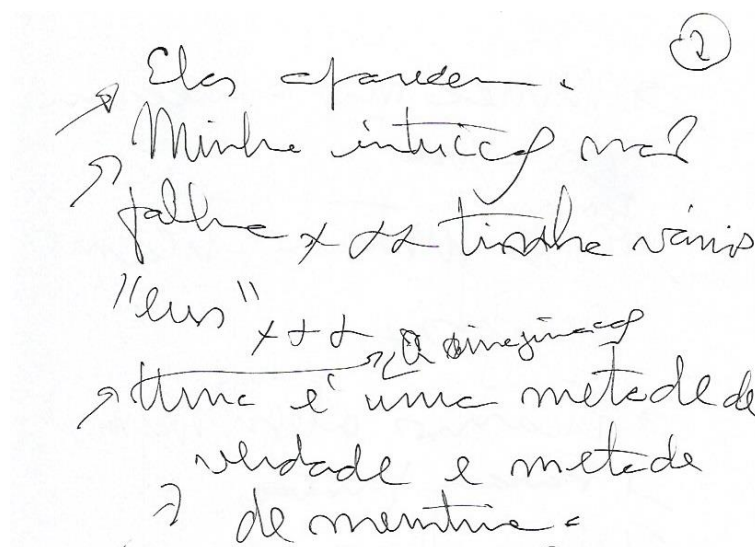 2
Elas aparecem.
Minha intuição não
falha x + + tinha vários
"eus" x + +
A imaginação
Uma é uma metade de
verdade e metade
de mentira.